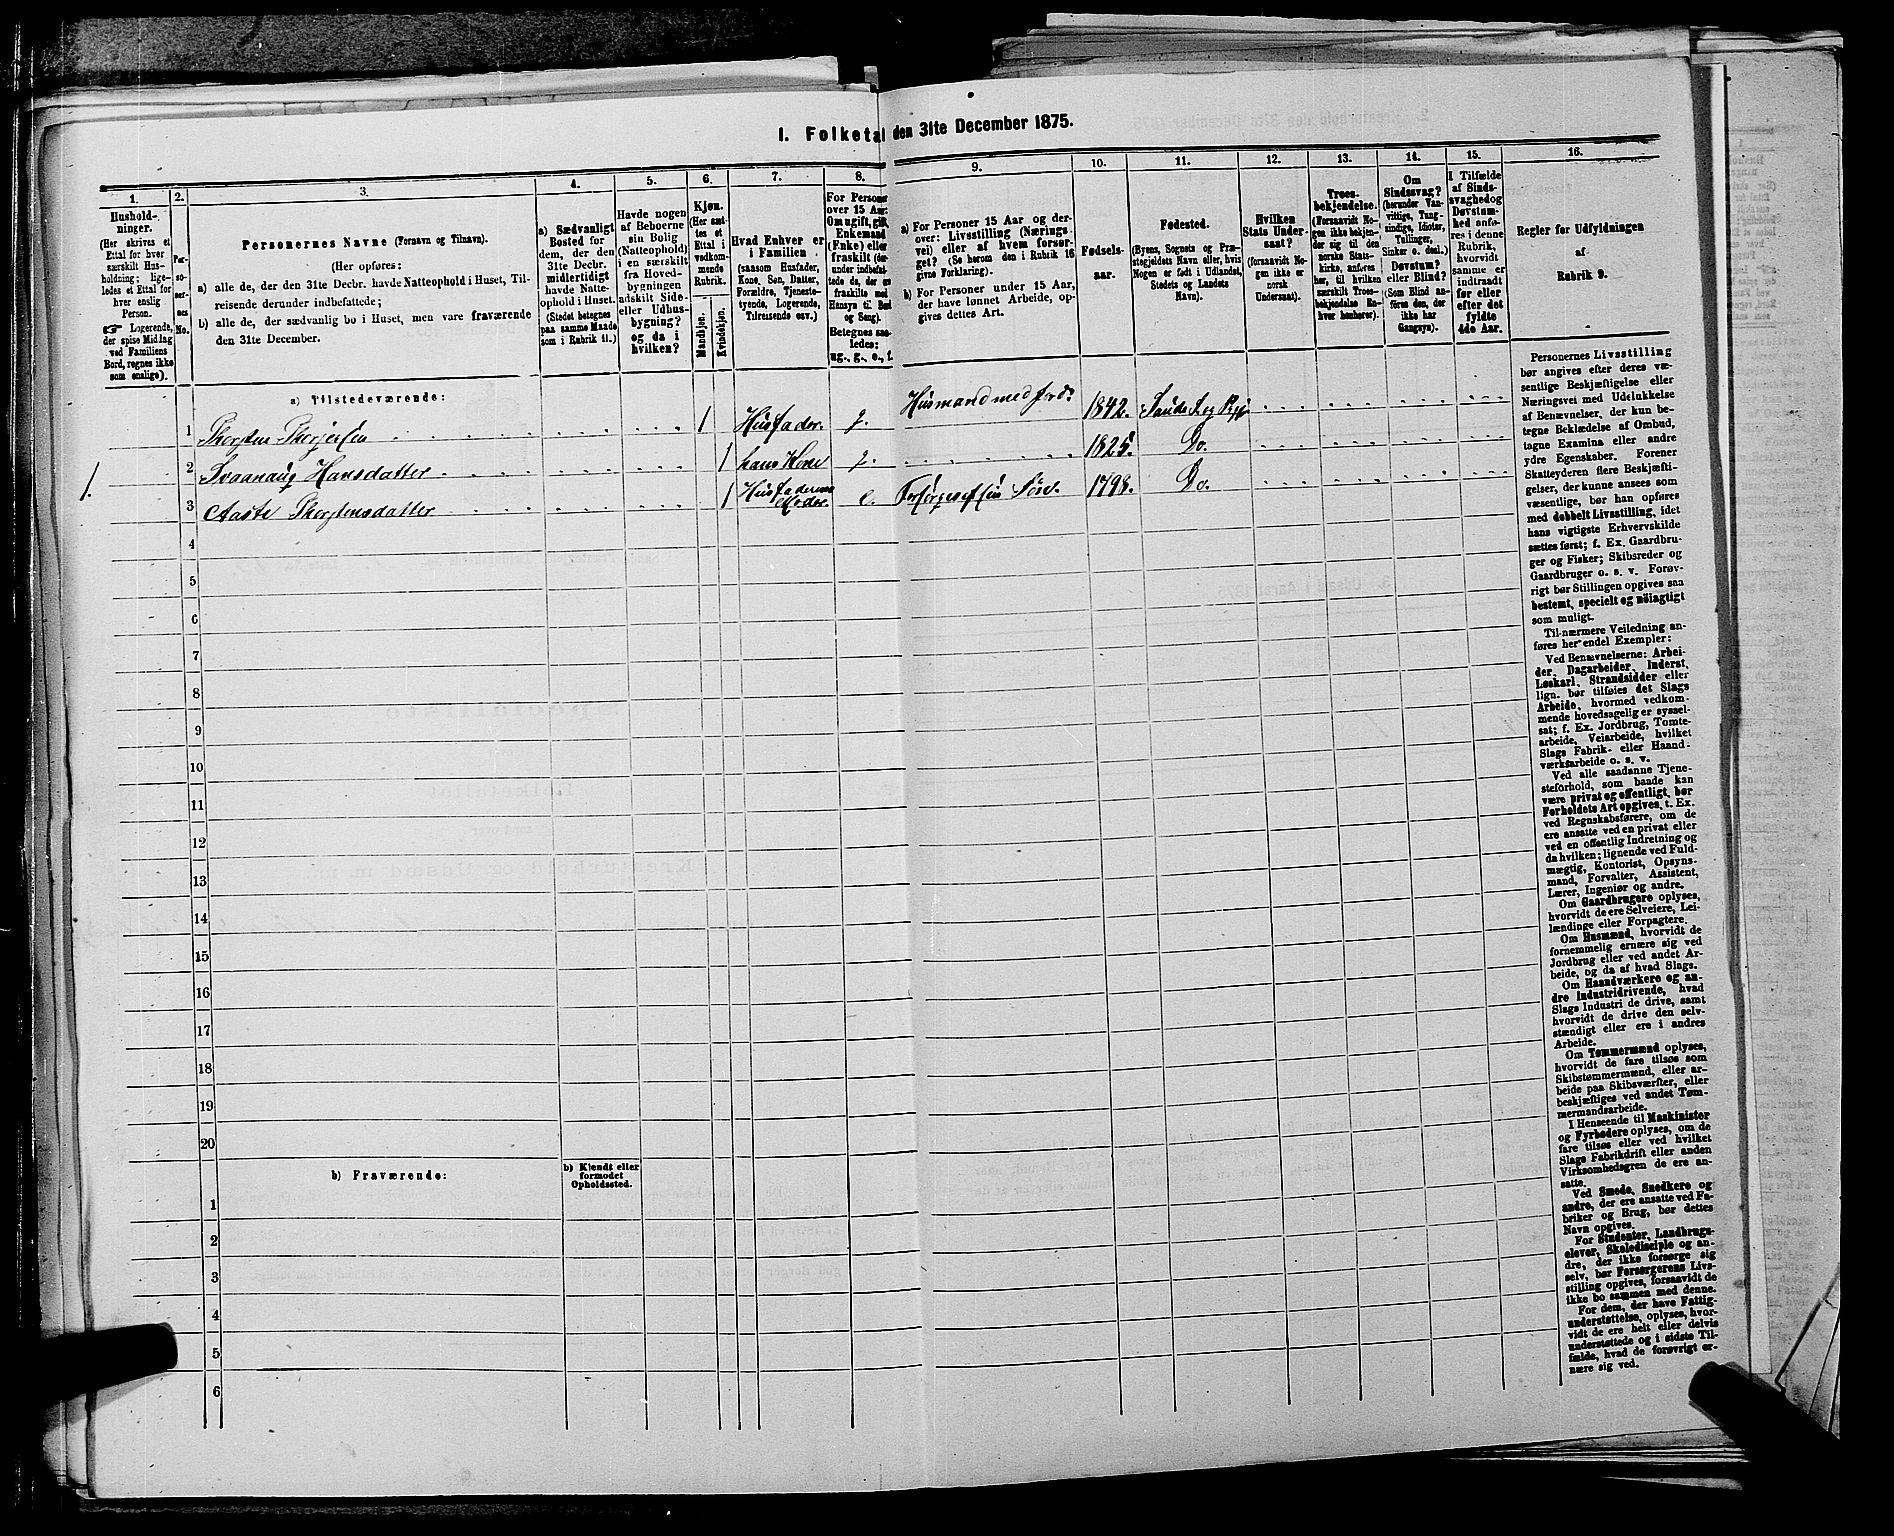 I. Folketal den 31te December 1875.
1.
Hushold-
ninger.
(Her skrives et
Ettal for hver
særskilt Hus-
holdning; lige-
ledes et Ettal for
hver enslig
Person.
☞ Logerende,
der spise Middag
ved Familiens
Bord, regnes ikke
som enslige).
2.
Per-
so-
ner-
nes
No.
3.
Personernes Navne (Fornavn og Tilnavn).
(Her opføres:
a) alle de, der den 31te Decbr. havde Natteophold i Huset, Til-
reisende derunder indbefattede;
b) alle de, der sædvanlig bo i Huset, men vare fraværende
den 31te December.
4.
a) Sædvanligt
Bosted for
dem, der den
31te Decbr.
midlertidigt
havde Natte-
ophold i Huset.
(Stedet betegnes
paa samme Maade
som i Rubrik 11.)
5.
Havde nogen
af Beboerne
sin Bolig
(Natteophold)
i en særskilt
fra Hoved-
bygningen
adskilt Side-
eller Udhus-
bygning?
og da i
hvilken?
6.
Kjøn.
(Her sæt-
tes et
Ettal i
vedkom-
mende
Rubrik.
Mandkjøn.
Kvindekjøn.
7.
Hvad Enhver er
i Familien
(saasom Husfader,
Kone, Søn, Datter,
Forældre, Tjeneste-
tyende, Logerende,
Tilreisende osv.)
8.
For Personer
over 15 Aar:
Om ugift, gift,
Enkemand
(Enke) eller
fraskilt (der-
under indbefat-
tede de, der ere
fraskilte med
Hensyn til Bord
og Seng).
Betegnes saa-
ledes:
ug., g., e., f.
9.
a) For Personer 15 Aar og der-
over: Livsstilling (Nærings-
vei) eller af hvem forsør-
get? (Se herom den i Rubrik 16
givne Forklaring).
b) For Personer under 15 Aar,
der have lønnet Arbeide, op-
gives dettes Art.
10.
Fødsels-
aar.
11.
Fødested.
(Byens, Sognets og Præ-
stegjeldets Navn eller, hvis
Nogen er født i Udlandet,
Stedets og Landets
Navn).
12.
Hvilken
Stats Under-
saat?
(forsaavidt No-
gen ikke er
norsk
Undersaat).
13.
Troes-
bekjendelse.
(Forsaavidt No-
gen ikke bekjen-
der sig til den
norske Stats-
kirke, anføres
her, til hvilken
særskilt Troes-
bekjendelse En-
hver henhører).
14.
Om
Sindssvag?
(herunder Van-
vittige, Tung-
sindige, Idioter,
Tullinger,
Sinker o. desl.)
Døvstum?
eller Blind?
(Som Blind an-
føres den, der
ikke har
Gangsyn).
15.
I Tilfælde
af Sinds-
svaghed og
Døvstum-
hed anfø-
res i denne
Rubrik,
hvorvidt
samme er
indtraadt
før eller
efter det
fyldte
4de Aar.
16.
Regler for Udfyldningen
af
Rubrik 9.
a) Tilstedeværende:
1 Thorsten Thorjersen 1 Husfader. g. Husmand med Jord. 1842.
1. 2 Svaanaug Hansdatter 1 hans Kone g. 1825. Do.
3 Aaste Thorstensdatter 1 Husfaderens Moder. e. Forsørges af sin Søn. 1798. Do.
4
5
6
7
8
9
10
11
12
13
14
15
16
17
18
19
20
b) Fraværende:
b) Kjendt eller
formodet
Opholdssted.
1
2
3
4
5
6
Personernes Livsstilling
bør angives efter deres væ-
sentlige Beskjæftigelse eller
Næringsvei med Udelukkelse
af Benævnelser, der kun be-
tegne Beklædelse af Ombud,
tagne Examina eller andre
ydre Egenskaber. Forener
Skatteyderen flere Beskjæfti-
gelser, der kunne ansees som
væsentlige, bør han opføres
med dobbelt Livsstilling, idet
hans vigtigste Erhvervskilde
sættes først; f. Ex. Gaardbru-
ger og Fisker; Skibsreder og
Gaardbruger o. s. v. Forøv-
rigt bør Stillingen opgives saa
bestemt, specielt og nøiagtigt
som muligt.
Til nærmere Veiledning an-
føres her endel Exempler:
Ved Benævnelserne: Arbei-
der, Dagarbeider, Inderst,
Løskarl, Strandsidder eller
lign. bør tilføies det Slags
Arbeide, hvormed vedkom-
mende hovedsagelig er syssel-
sat; f. Ex. Jordbrug, Tomte-
arbeide, Veiarbeide, hvilket
Slags Fabrik- eller Haand-
værksarbeide o. s. v.
Ved alle saadanne Tjene-
steforhold, som baade kan
være privat og offentligt, bør
Forholdets Art opgives, t. Ex.
ved Regnskabsførere, om de
ere ansatte ved en privat eller
ved en offentlig Indretning og
da hvilken; lignende ved Fuld-
mægtig, Kontorist, Opsyns-
mand, Forvalter, Assistent,
Lærer, Ingeniør og andre.
Om Gaardbrugere oplyses,
hvorvidt de ere Selveiere, Lei-
lændinge eller Forpagtere.
Om Husmænd, hvorvidt de
fornemmelig ernære sig ved
Jordbrug eller ved andet Ar-
beide, og da af hvad Slags.
Om Haandværkere og an-
dre Industridrivende, hvad
Slags Industri de drive, samt
hvorvidt de drive den selv-
stændigt eller ere i andres
Arbeide.
Om Tømmermænd oplyses,
hvorvidt de fare tilsøs som
Skibstømmermænd, eller ar-
beide paa Skibsværfter, eller
beskjæftiges ved andet Tøm-
mermandsarbeide.
I Henseende til Maskinister
og Fyrbødere oplyses, om de
fare tilsøs eller ved hvilket
Slags Fabrikdrift eller anden
Virksomhedsgren de ere an-
satte.
Ved Smede, Snedkere og
andre, der ere ansatte ved Fa-
briker og Brug, bør dettes
Navn opgives.
For Studenter, Landbrugs-
elever, Skoledisciple og an-
dre, der ikke forsørge sig
selv, bør Forsørgerens Livs-
stilling opgives, forsaavidt de
ikke bo sammen med denne.
For dem, der have Fattig-
understøttelse, oplyses, hvor-
vidt de ere helt eller delvis
understøttede og i sidste Til-
fælde, hvad de forøvrigt er-
nære sig ved.